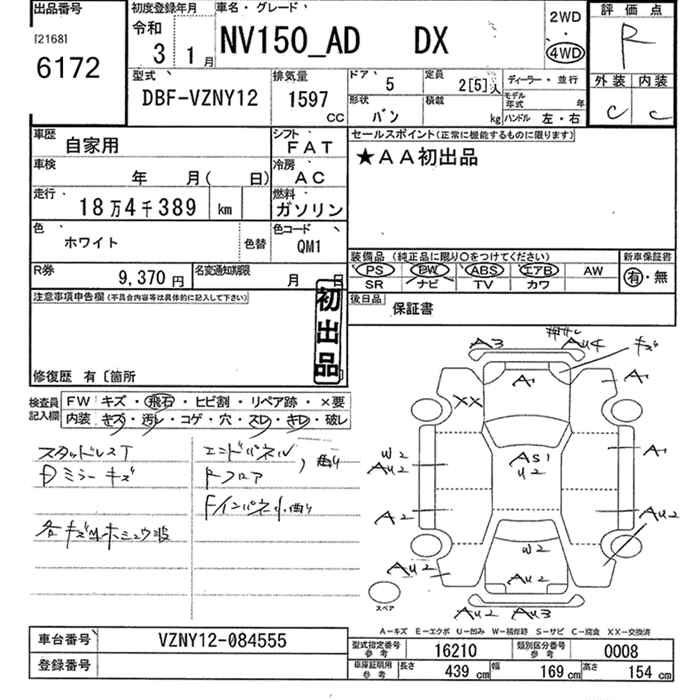 出品番号 初度登録年月 車名・グレード 2WD ・ 4WD 評価点
[2168] 6172 令和 3 1月 NV150_AD DX R
型式 DBF-VZNY12 排気量 1597 CC ドア 5 定員 2[5]人 ディーラー・並行 外装 内装
形状 バン 積載 kg モデル年式 年 ハンドル 左・右 C C
車歴 自家用 シフト FAT セールスポイント(正常に機能するものに限ります)
車検 年 月( 日) 冷房 AC ★AA初出品
走行 18万4千389 km 燃料 ガソリン
色 ホワイト 色替 色コード QM1
装備品 (純正品に限り○をつけてください) 新車保証書
R券 9,370円 名変通知期限 月 日 PS PW ABS エアB AW 有・無
SR ナビ TV カワ
注意事項申告欄(不具合内容等は具体的に記入して下さい) 初出品 後日品 保証書
修復歴 有〔箇所
検査員記入欄 FW キズ・飛石・ヒビ割・リペア跡・×要
内装・キズ・汚レ・コゲ・穴・スレ・キレ・破レ
スタッドレスT エンドパネル 曲り
Dミラーキズ Rフロア
Fインパネ小曲り
A3 AU4 キズ
A1 A1
XX
W2 AU2 AS1 U2 A1
A2 AU2
W2
AU2 AU2
AU2 AU3
スペア
A−キズ E−エクボ U−凹み W−補修跡 S−サビ C−腐食 XX−交換済
車台番号 VZNY12-084555 型式指定番号 参考 16210 類別区分番号 参考 0008
登録番号 車庫証明用 参考 長さ 439 cm 幅 169 cm 高さ 154 cm